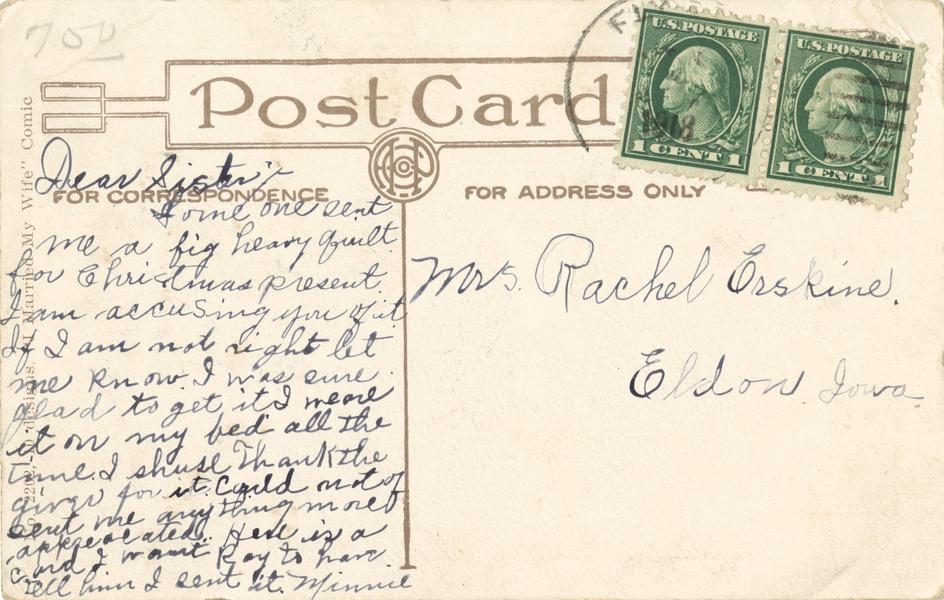 700
Post Card
FOR CORRESPONDENCE
FOR ADDRESS ONLY
U.S. POSTAGE
1 CENT 1
U.S. POSTAGE
1 CENT 1
1918
Dear Sister
Some one sent
me a big heavy quilt
for Christmas present.
I am accusing you of it
If I am not right let
me know. I was sure
glad to get it I
it on my bed all the
time. I Thank the
for it. Could not of
sent me anything more
. Here is a
card I want Ray to have
tell him I sent it. Minnie
Mrs. Rachel Erskine.
Eldon, Iowa.
designs, "If I Married My Wife" Comic